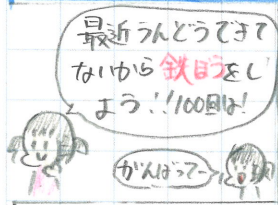 最近うんどうできて
ないから鉄ぼうをし
よう!!100回は!
がんばってー